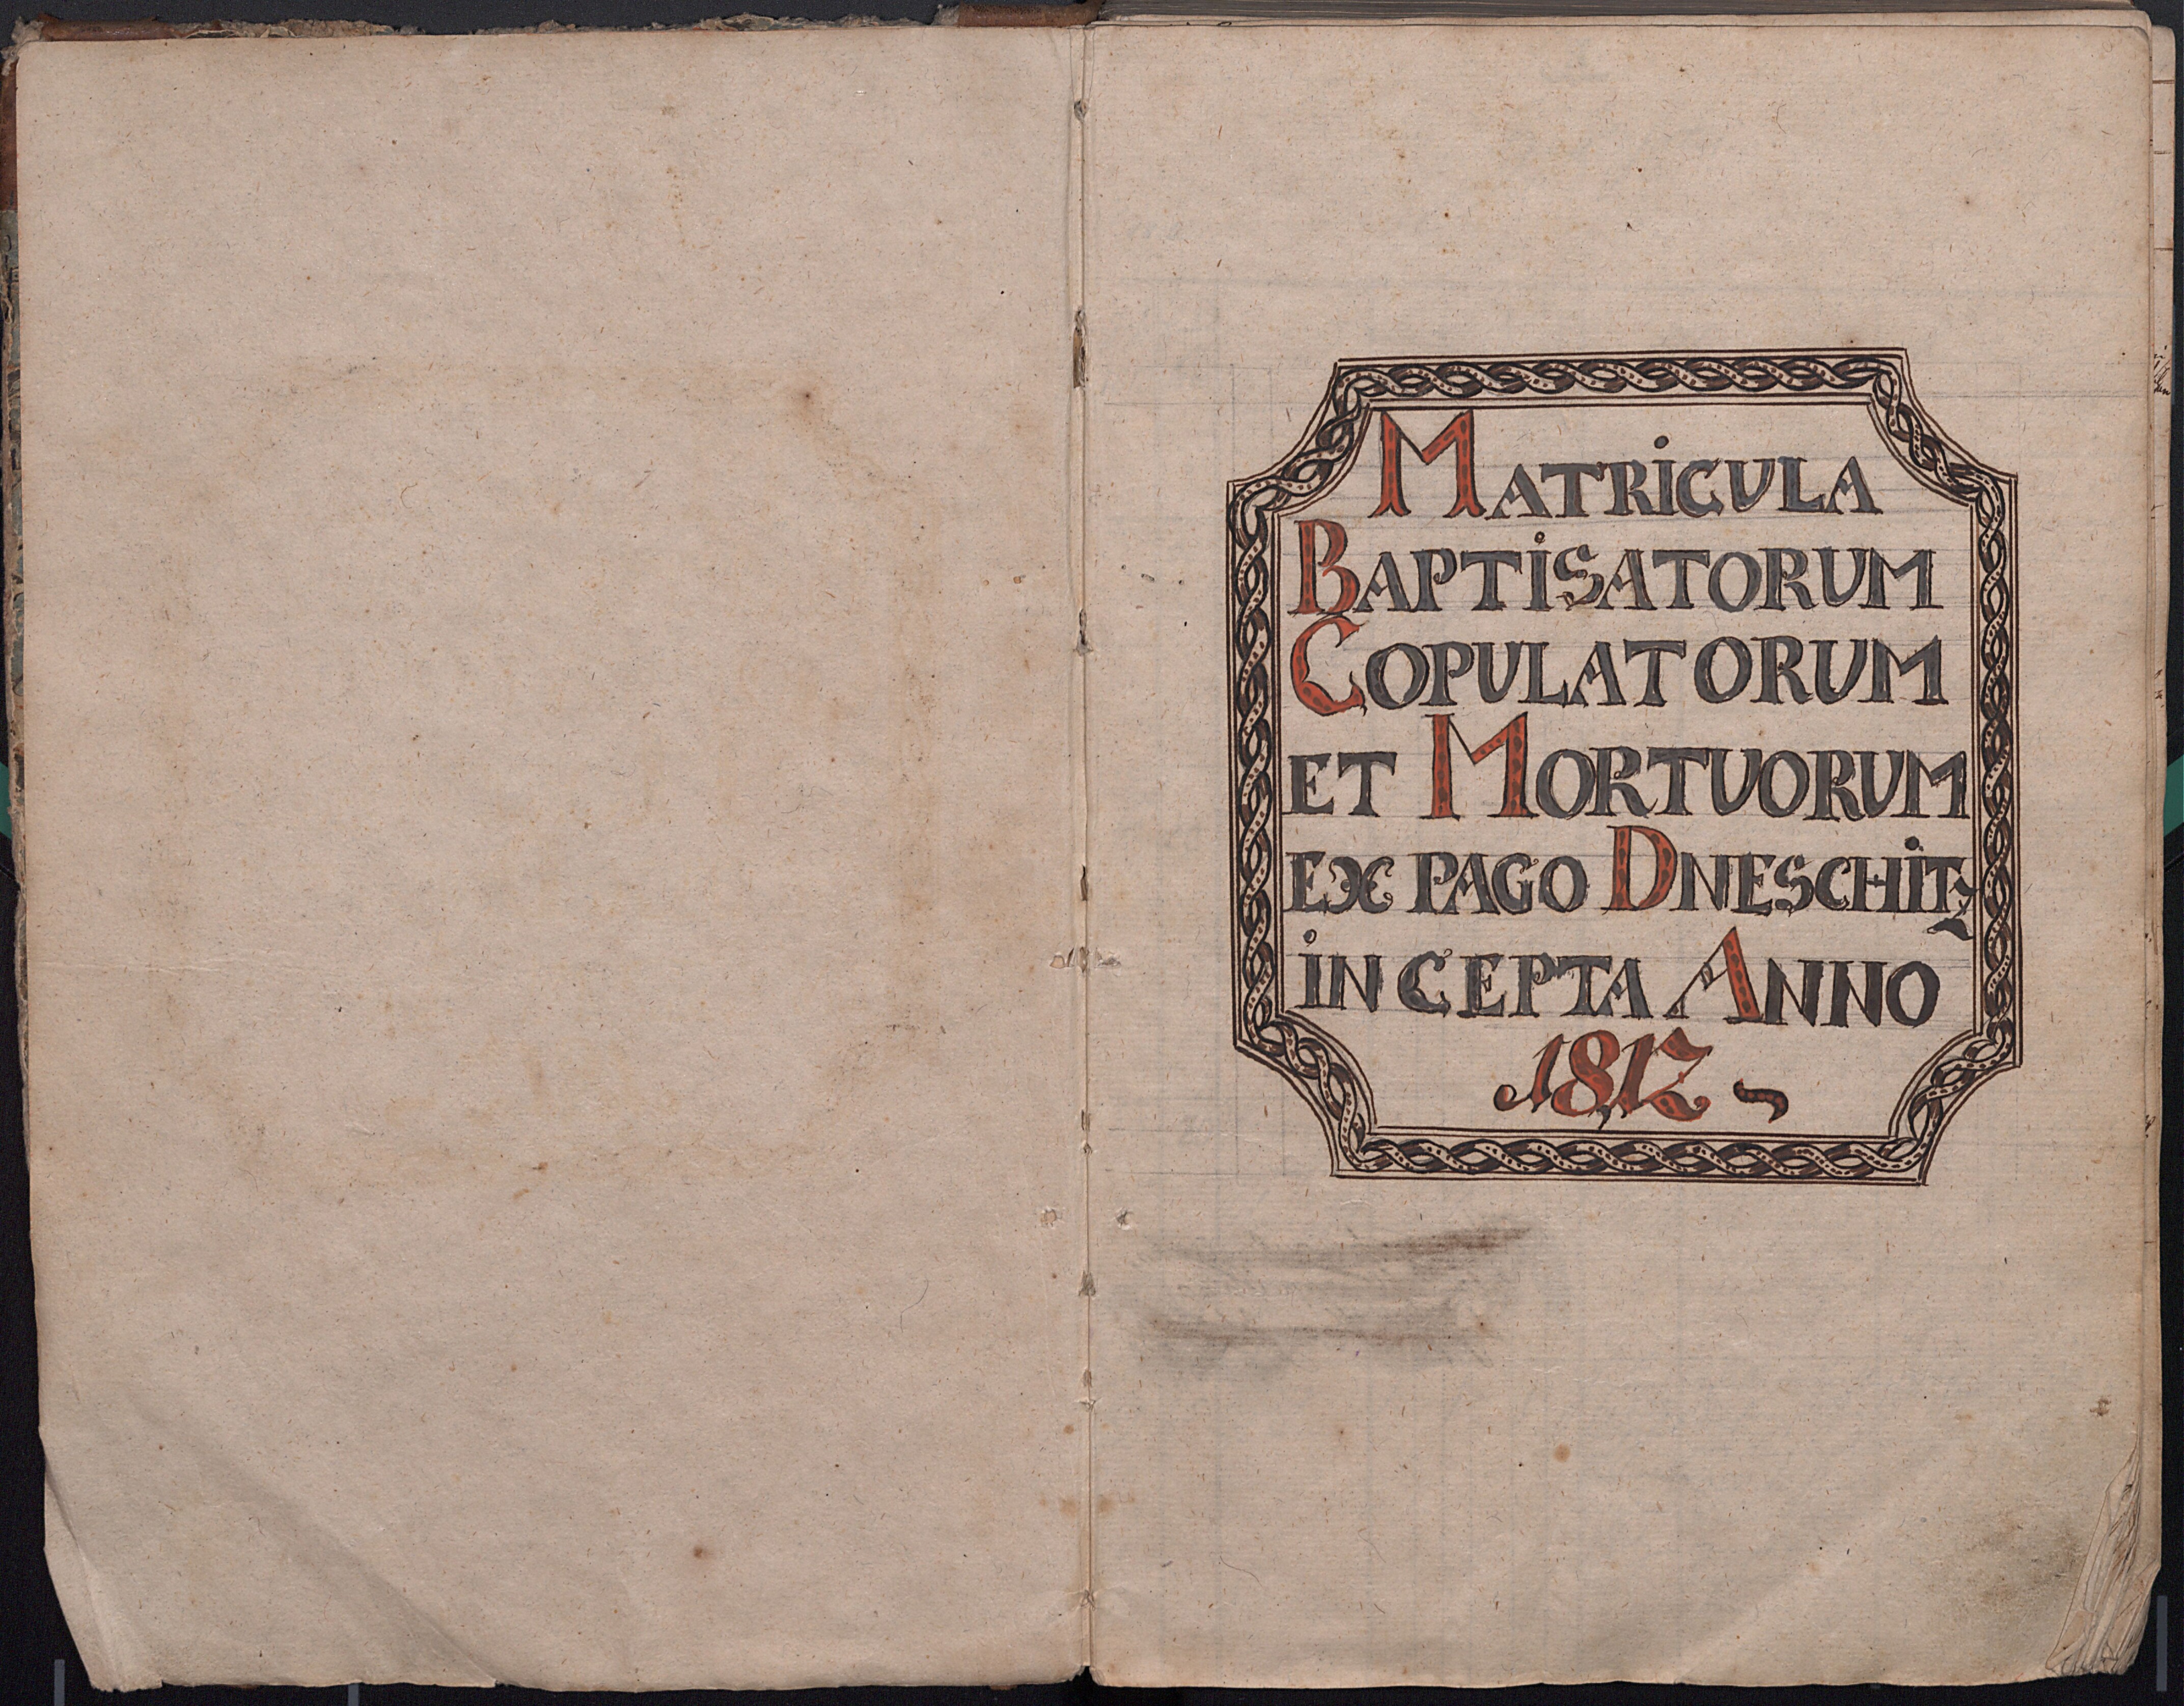 MATRICULA
BAPTISATORUM
COPULATORUM
ET MORTUORUM
EX PAGO DNESCHITZ
INCEPTA ANNO
1812